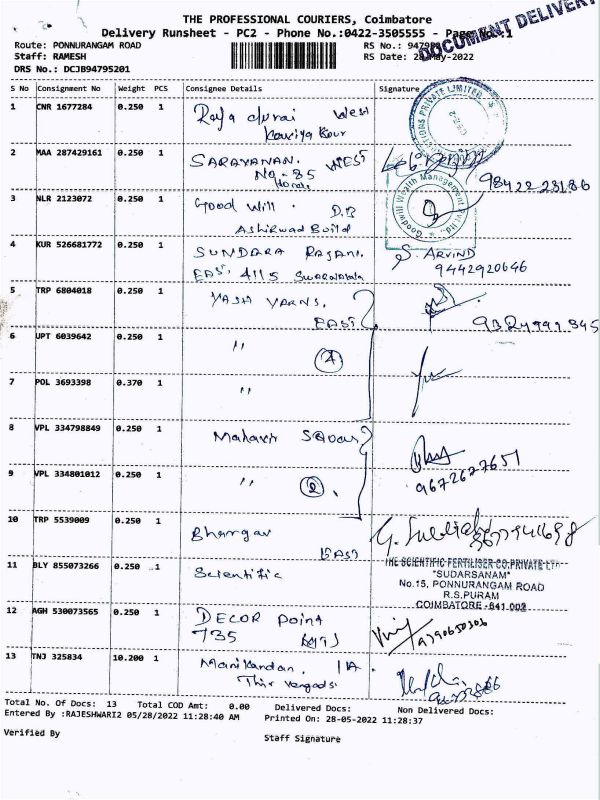 THE PROFESSIONAL COURIERS, Coimbatore
Delivery Runsheet - PC2 - Phone No.:0422-3505555 - Page
DOCUMENT DELIVERY
Route: PONNURANGAM ROAD
Staff: RAMESH
DRS No.: DCJB94795201
RS No.:
RS Date: May-2022
S No Consignment No Weight PCS Consignee Details Signature
1 CNR 1677284 0.250 1 Raja durai West
2 MAA 287429161 0.250 1 SARAVANAN. WEST
No-85
98422 23186
3 NLR 2123072 0.250 1 Good Will D.B
Ashirwad Build
Goodwill Wealth Management Pvt Ltd.,
4 KUR 526681772 0.250 1 SUNDARA RAJANI. S. ARVIND
EAST, 4115 9442920646
5 TRP 6804018 0.250 1 YASH YARNS.
EAST
6 UPT 6039642 0.250 1 "
7 POL 3693398 0.370 1 "
8 VPL 334798849 0.250 1 Mahavir
9672627651
9 VPL 334801012 0.250 1 " 2.
10 TRP 5539009 0.250 1 Bhargav
EAST
11 BLY 855073266 0.250 1 Scientific
THE SCIENTIFIC FERTILISER CO.PRIVATE LTD
"SUDARSANAM"
No.15, PONNURANGAM ROAD
R.S.PURAM
COIMBATORE-641 002
12 AGH 530073565 0.250 1 DECOR Point
735
9790650306
13 TNJ 325834 10.200 1 Manikandan. 1A.
Total No. Of Docs: 13 Total COD Amt: 0.00 Delivered Docs: Non Delivered Docs:
Entered By :RAJESHWARI2 05/28/2022 11:28:40 AM Printed On: 28-05-2022 11:28:37
Verified By
Staff Signature